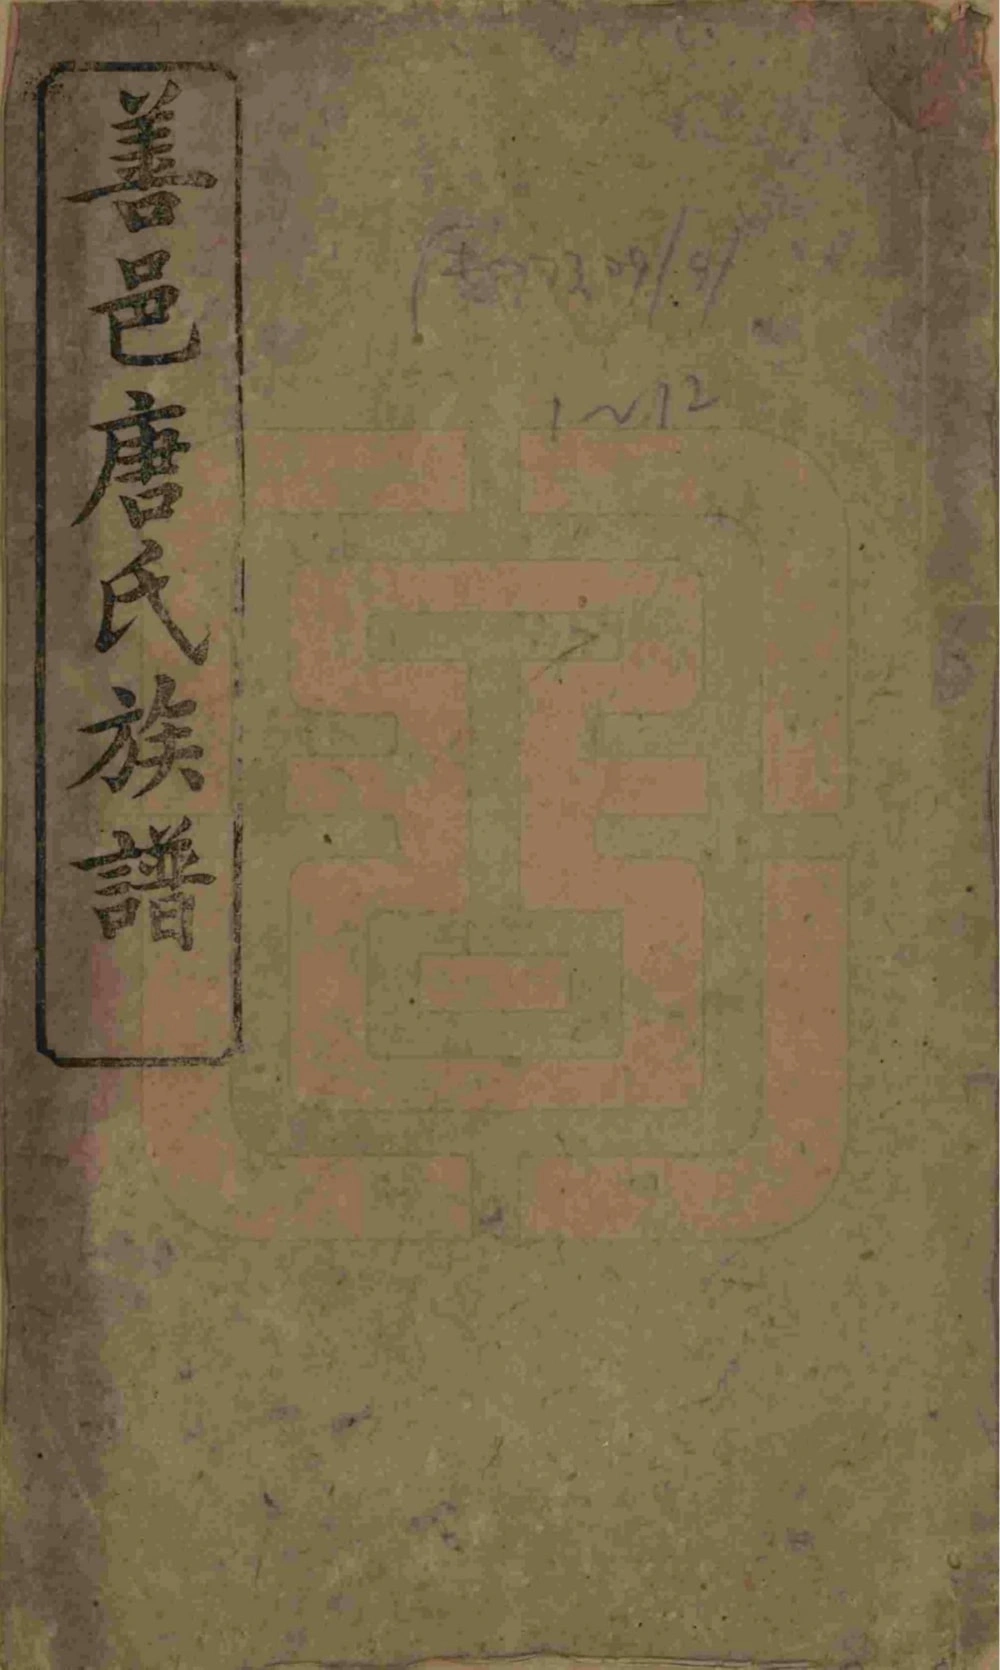 善邑唐氏族譜
1~12